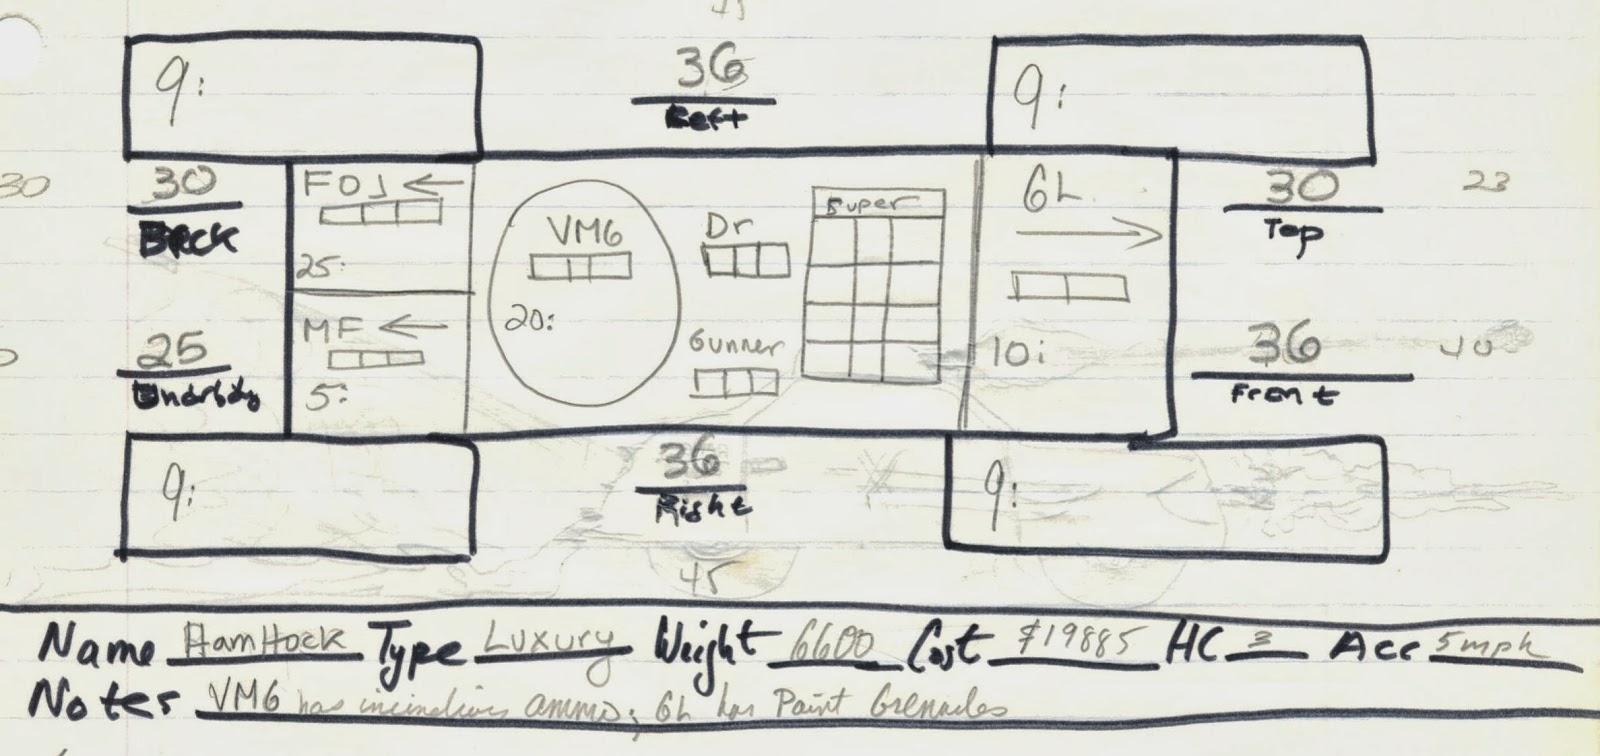 45
9:
36
Left
9:
30
30
Back
FOJ ←
25:
VM6
20:
Dr
Super
GL
→
10:
30
Top
23
25
Undrbdy
MF ←
5:
Gunner
36
Front
40
9:
36
Right
9:
45
Name HamHock Type Luxury Weight 6600 Cost $19885 HC 3 Acc 5mph
Notes VM6 has incindiary ammo; GL has Paint Grenades